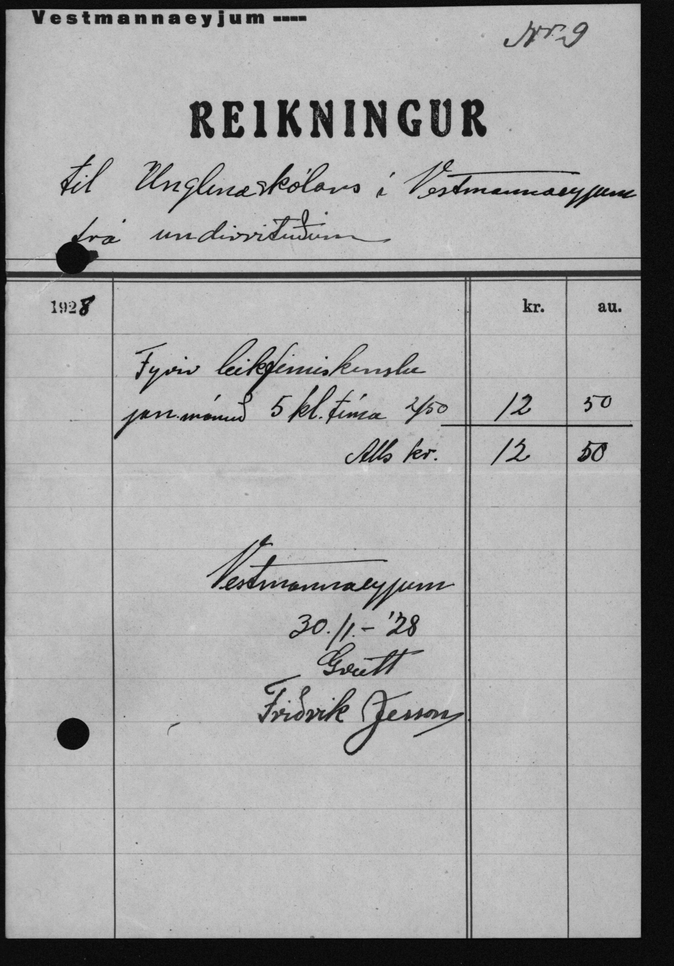 Vestmannaeyjum ----
Nr. 9
REIKNINGUR
til Unglinaskólans í Vestmannaeyjum
frá undirrituðum
1928 kr. au.
Fyrir leikfimiskenslu
jan. mánuð 5 kl. tíma 2/50 12 50
Alls kr. 12 50
Vestmannaeyjum
30./1. - '28
Greitt
Friðrik Jesson